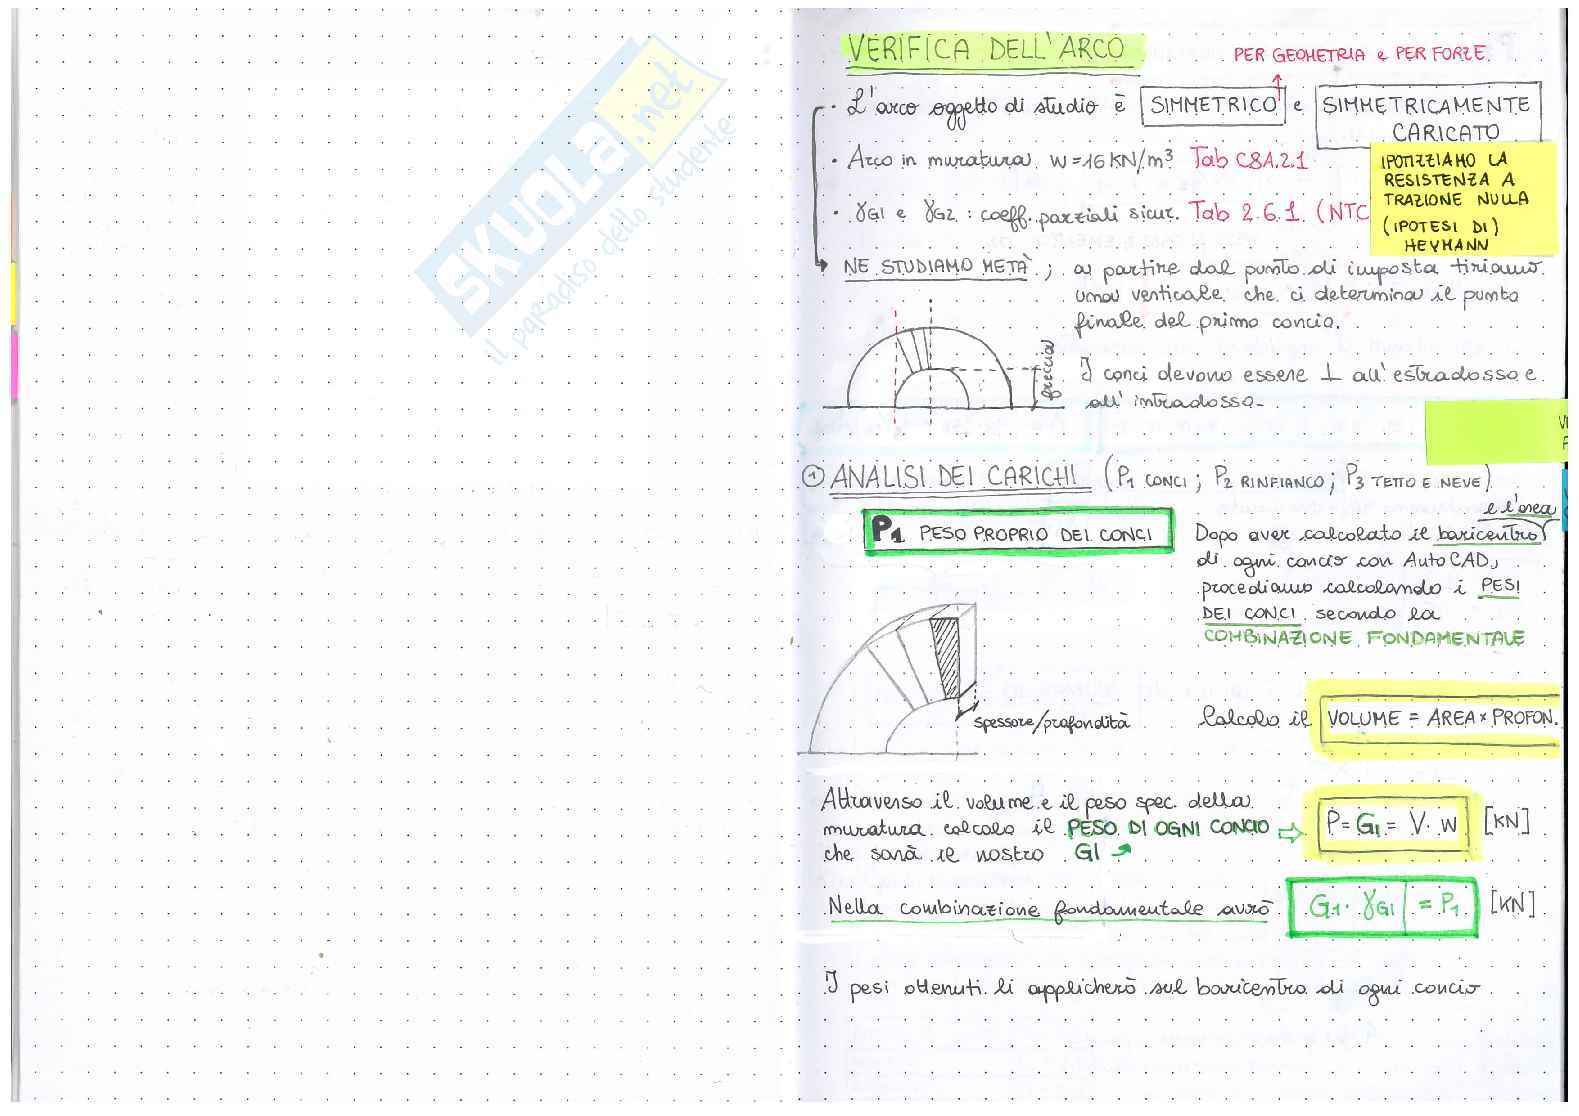 SKUOLA.net
il paradiso dello studente
VERIFICA DELL'ARCO
PER GEOMETRIA e PER FORZE
· L'arco oggetto di studio è SIMMETRICO e SIMMETRICAMENTE
CARICATO
· Arco in muratura w=16 KN/m³ Tab C8A.2.1
· γG1 e γG2 : coeff. parziali sicur. Tab 2.6.1. (NTC
IPOTIZZIAMO LA
RESISTENZA A
TRAZIONE NULLA
(IPOTESI DI)
HEYMANN
NE STUDIAMO METÀ ; a partire dal punto di imposta tiriamo
una verticale che ci determina il punto
finale del primo concio.
freccia
I conci devono essere ⊥ all'estradosso e
all'intradosso-
① ANALISI DEI CARICHI (P1 CONCI ; P2 RINFIANCO ; P3 TETTO E NEVE)
P1 PESO PROPRIO DEI CONCI
e l'area
Dopo aver calcolato il baricentro
di ogni concio con AutoCAD,
procediamo calcolando i PESI
DEI CONCI secondo la
COMBINAZIONE FONDAMENTALE
spessore/profondità
Calcolo il VOLUME = AREA × PROFON.
Attraverso il volume e il peso spec. della
muratura calcolo il PESO DI OGNI CONCIO ⇨ P = G1 = V · w [KN]
che sarà il nostro G1
Nella combinazione fondamentale avrò G1 · γG1 = P1 [KN]
I pesi ottenuti li applicherò sul baricentro di ogni concio